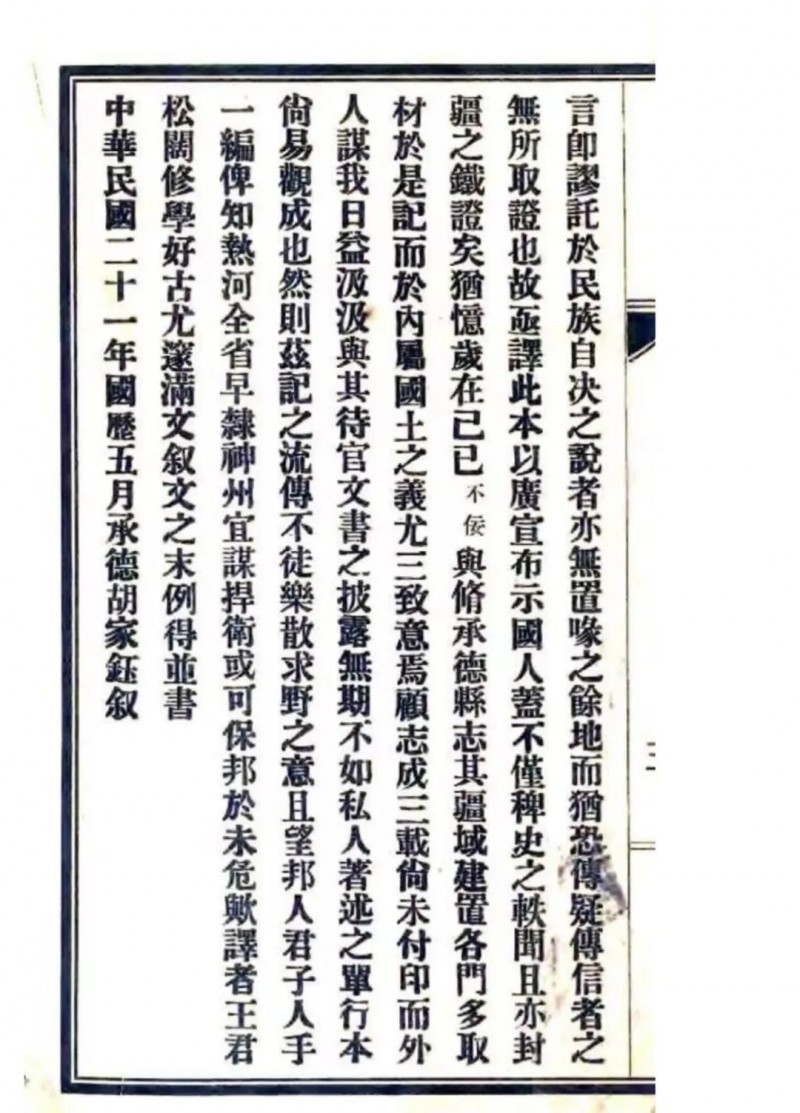 言卽謬託於民族自決之說者亦無置喙之餘地而猶恐傳疑傳信者之
無所取證也故亟譯此本以廣宣布示國人蓋不僅稗史之軼聞且亦封
疆之鐵證矣猶憶歲在己巳不佞與脩承德縣志其疆域建置各門多取
材於是記而於內屬國土之義尤三致意焉顧志成三載尙未付印而外
人謀我日益汲汲與其待官文書之披露無期不如私人著述之單行本
尙易觀成也然則茲記之流傳不徒樂散求野之意且望邦人君子人手
一編俾知熱河全省早隸神州宜謀捍衛或可保邦於未危歟譯者王君
松闊修學好古尤邃滿文叙文之末例得並書
中華民國二十一年國歷五月承德胡家鈺叙
三